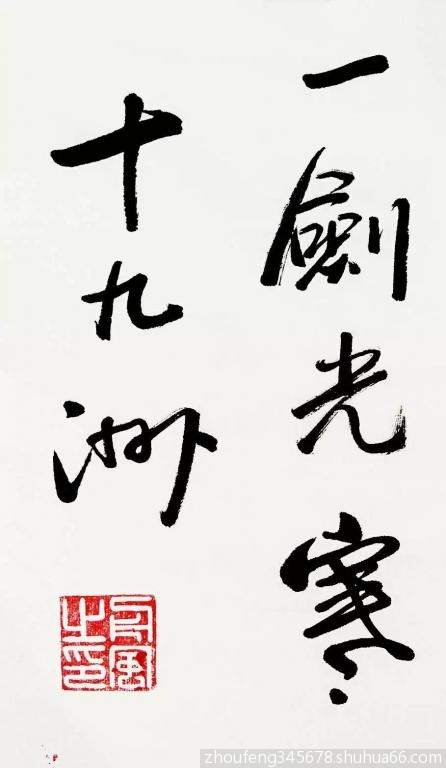 一劍光寒
十九洲
之印
zhoufeng345678.shuhua66.com